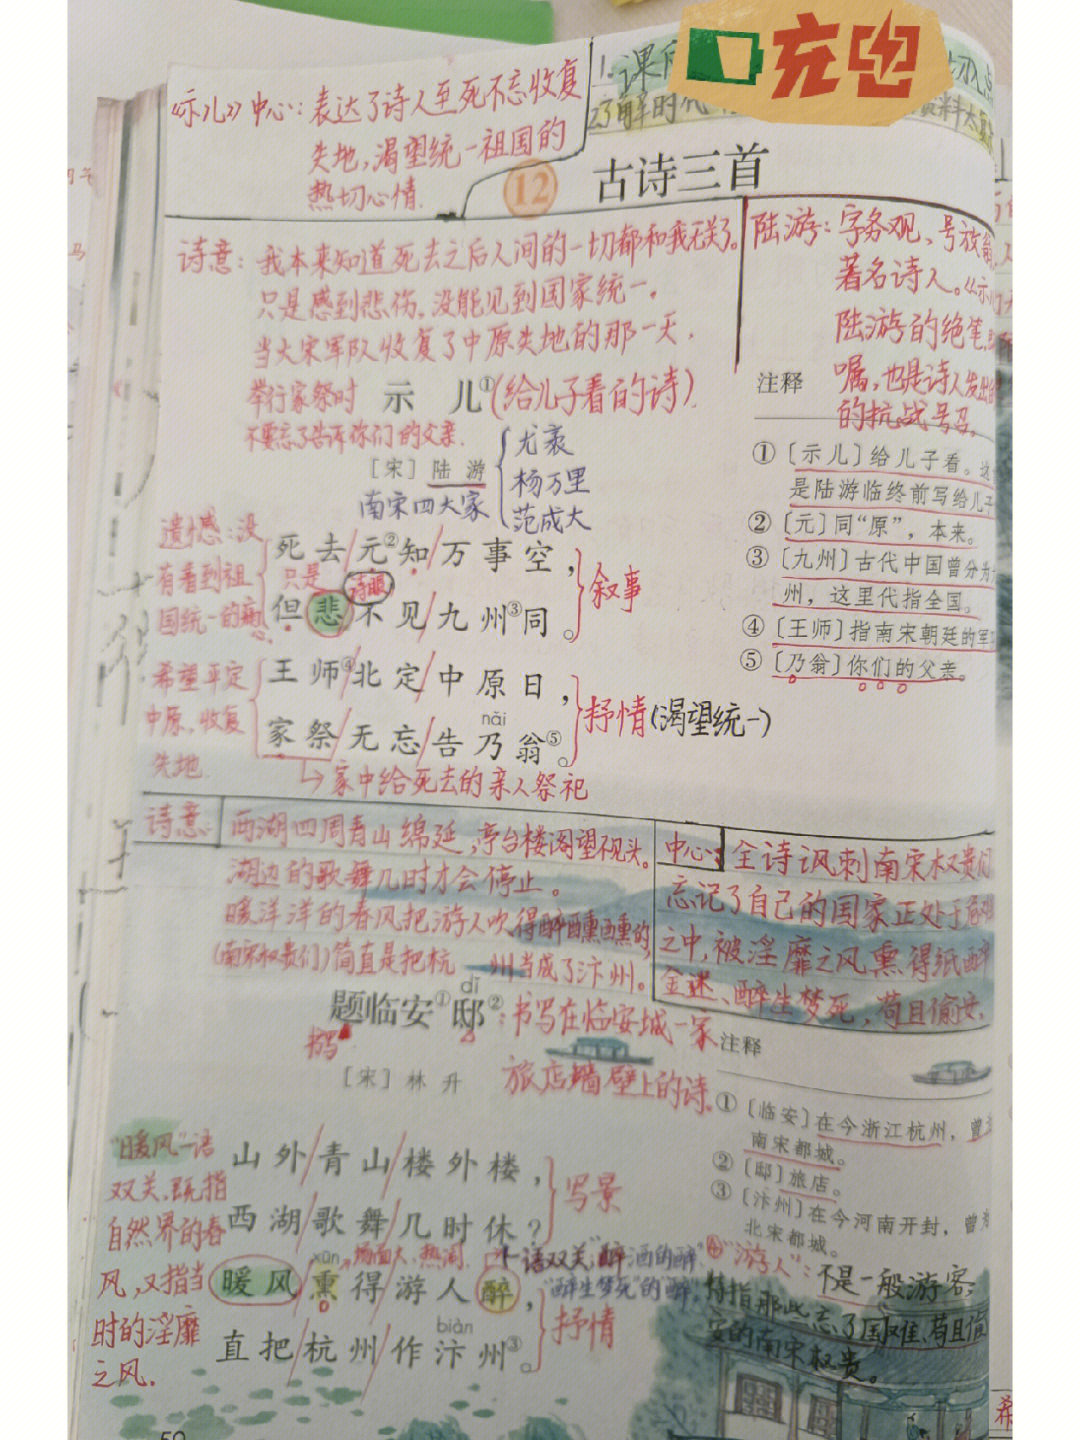 充电
1.课
了解时代
资料
《示儿》中心:表达了诗人至死不忘收复
失地,渴望统一祖国的
热切心情.
12 古诗三首
诗意:我本来知道死去之后人间的一切都和我无关了。
只是感到悲伤,没能见到国家统一。
当大宋军队收复了中原失地的那一天,
举行家祭时
不要忘了告诉你们的父亲.
陆游:字务观、号放翁
著名诗人。《示儿》
陆游的绝笔
嘱,也是诗人发出的
的抗战号召。
示儿①(给儿子看的诗)
[宋] 陆游
南宋四大家
尤袤
杨万里
范成大
注释
①〔示儿〕给儿子看。这
是陆游临终前写给儿子
②〔元〕同“原”,本来。
③〔九州〕古代中国曾分为
州,这里代指全国。
④〔王师〕指南宋朝廷的军
⑤〔乃翁〕你们的父亲。
遗憾:没
有看到祖
国统一的
死去/元②知/万事空,
只是
诗眼
但悲不见/九州③同。
叙事
希望平定
中原,收复
失地.
王师④/北定/中原日,
nǎi
家祭/无忘/告乃翁⑤。
抒情(渴望统一)
家中给死去的亲人祭祀
诗意:西湖四周青山绵延,亭台楼阁望不见头。
湖边的歌舞几时才会停止。
暖洋洋的春风把游人吹得醉醺醺的,
(南宋权贵们)简直是把杭州当成了汴州。
中心:全诗讽刺南宋权贵们
忘记了自己的国家正处于危难
之中,被淫靡之风熏得纸醉
金迷、醉生梦死,苟且偷安.
dǐ
题临安①邸②:书写在临安城一家
旅店墙壁上的诗.
书写
[宋] 林升
注释
①〔临安〕在今浙江杭州,曾
南宋都城。
②〔邸〕旅店。
③〔汴州〕在今河南开封,曾为
北宋都城。
“暖风”一语
双关,既指
自然界的春
风,又指当
时的淫靡
之风.
山外/青山/楼外楼,
西湖/歌舞/几时休?
写景
xūn
场面大、热闹.
一语双关“醉”酒的醉
“醉生梦死”的“醉”
暖风/熏得游人醉,
biàn
直把/杭州/作汴州③。
抒情
“游人”:不是一般游客,
特指那些忘了国难、苟且偷
安的南宋权贵。